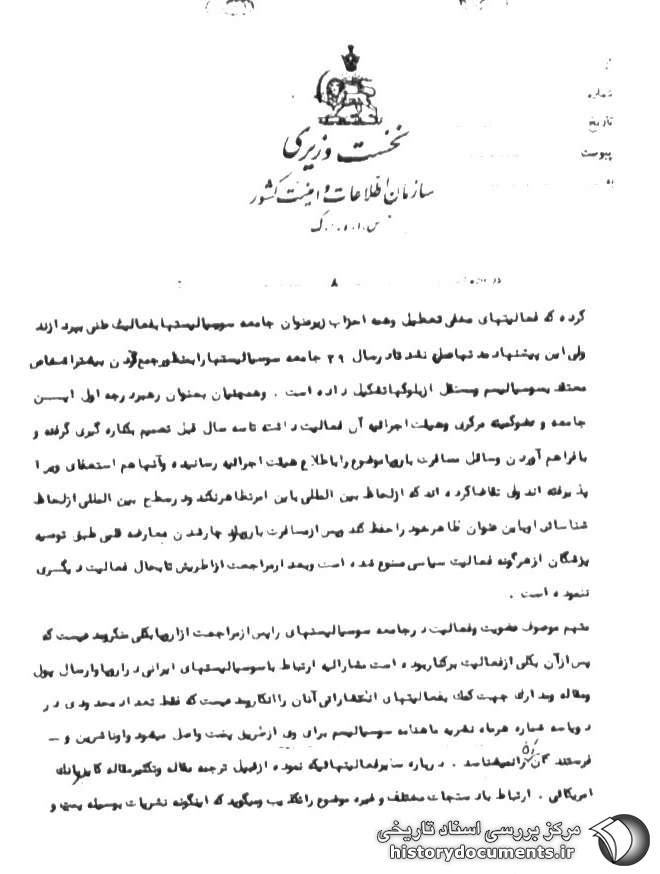 شماره
تاریخ
پیوست
نخست وزیری
سازمان اطلاعات و امنیت کشور
س.ا.و.ا.ک
درباره
۸
کرده که فعالیتهای مخفی تعطیل وهمه احزاب زیرعنوان جامعه سوسیالیستها بفعالیت علنی بپردازند
ولی این پیشنهاد مدتها عملی نشد تا درسال ۳۹ جامعه سوسیالیستها را بمنظور جمع کردن بیشتر اشخاص
معتقد بسوسیالیسم ومستقل ازبلوکها تشکیل داده است . وهمچنان بعنوان رهبر درجه اول ایـــن
جامعه و عضو کمیته مرکزی وهیئت اجرائیه آن فعالیت داشته تا سه سال قبل تصمیم بکناره گیری گرفته و
با فراهم آوردن وسائل مسافرت باروپا موضوع را باطلاع هیئت اجرائیه رسانیده وآنها هم استعفای ویرا
پذیرفته اند ولی تقاضا کرده اند که ازلحاظ بین المللی باین امرتظاهر نکند ودرسطح بین المللی ازلحاظ
شناسائی اوباین عنوان ظاهر خود را حفظ کند وپس ازمسافرت باروپا و دچارشدن بعارضه قلبی طبق توصیه
پزشکان ازهرگونه فعالیت سیاسی ممنوع شده است وبعد ازمراجعت ازاطریش تابحال فعالیت دیگـری
ننموده است .
متهم موصوف عضویت وفعالیت درجامعه سوسیالیستهای را پس ازمراجعت ازاروپا بکلی منکر ومدعیست که
پس ازآن بکلی ازفعالیت برکنار بوده است مشارالیه ارتباط با سوسیالیستهای ایرانی دراروپا وارسال پول
ومقاله ومدارک جهت کمک بفعالیتهای انتشاراتی آنان را انکار ومدعیست که فقط تعداد محدودی در
دویا سه شماره هرماه نشریه ماهنامه سوسیالیسم برای وی ازطریق پست واصل میشود واوناشرین و ـــ
فرستندگان آن را نمیشناسد . درباره سایرفعالیتهائیکه نموده ازقبیل ترجمه مقاله وتکثیر مقاله
امریکائی . ارتباط با دستجات مختلف و غیره موضوع را تکذیب ومیگوید که اینگونه نشریات بوسیله پست و
مرکز بررسی اسناد تاریخی
historydocuments.ir